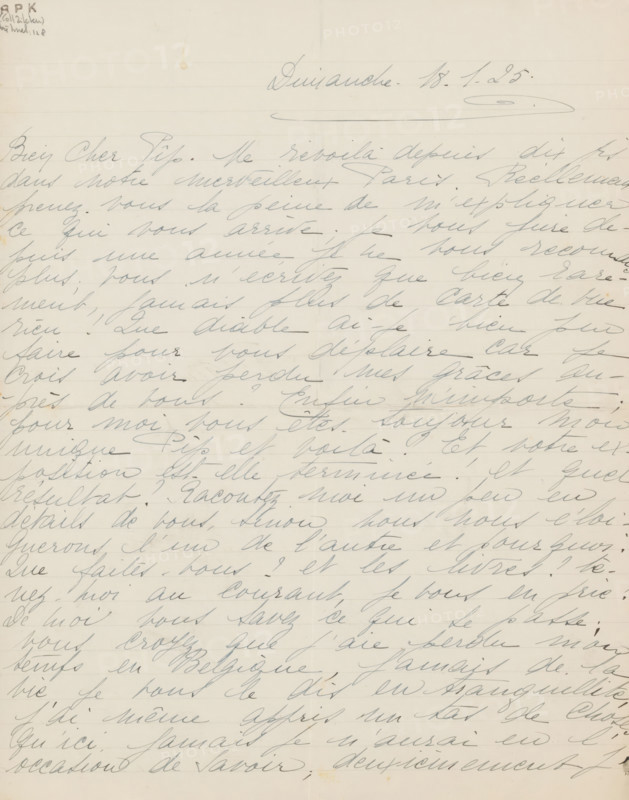 RPK
Dimanche. 18.1.25.
Bien Cher Pip. Me revoilà depuis dix js
dans notre merveilleux Paris. Reellement
prenez-vous la peine de m'expliquer
ce qui vous arrive. Je vous jure de-
puis une année je ne vous reconnais
plus, vous n'ecrivez que bien rare-
ment, jamais plus de carte de vue
rien! Que diable ai-je bien peu
faire pour vous déplaire car je
crois avoir perdu mes grâces au-
près de vous? Enfin n'importe,
pour moi vous êtes toujour mon
unique Pip et voilà! Et votre ex-
position est-elle terminée! et quel
résultat! Racontez moi un peu en
détails de vous, sinon nous nous éloi-
gnerons l'un de l'autre et pourquoi.
Que faites-vous? et les livres? te-
nez-moi au courant, je vous en prie!
De moi vous savez ce qui se passe.
Vous croyez que j'aie perdu mon
temps en Belgique, jamais de la
vie je vous le dis en tranquillité,
j'ai même appris un tas de choses
qu'ici jamais je n'aurai eu l'
occasion de savoir, deuxiemement j
PHOTO12